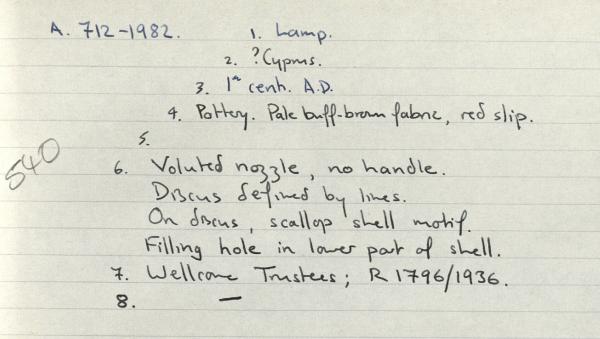 A. 712-1982. 1. Lamp.
2. ?Cyprus.
3. 1st cent. A.D.
4. Pottery. Pale buff-brown fabric, red slip.
5.
540
6. Voluted nozzle, no handle.
Discus defined by lines.
On discus, scallop shell motif.
Filling hole in lower part of shell.
7. Wellcome Trustees; R 1796/1936.
8. —